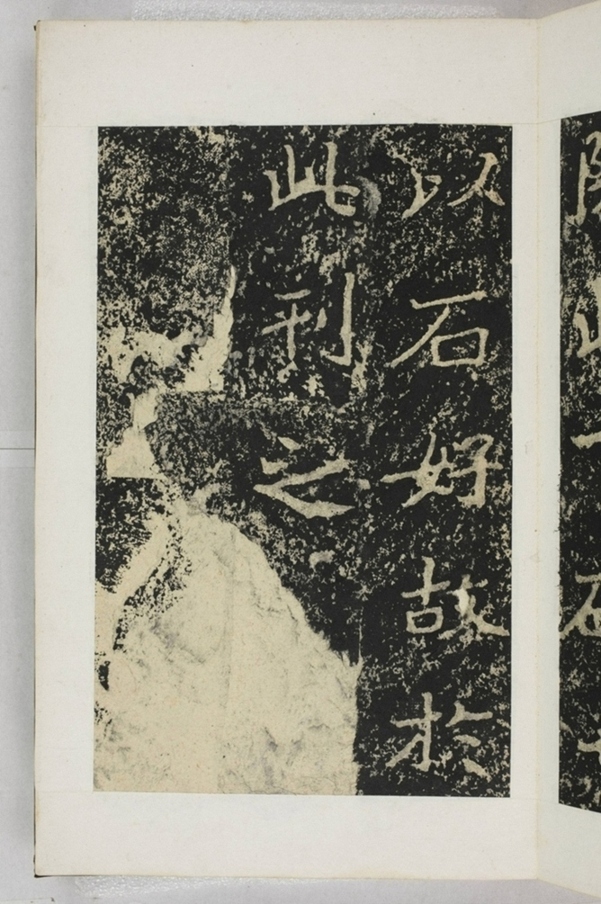 以石好故於
此刊之